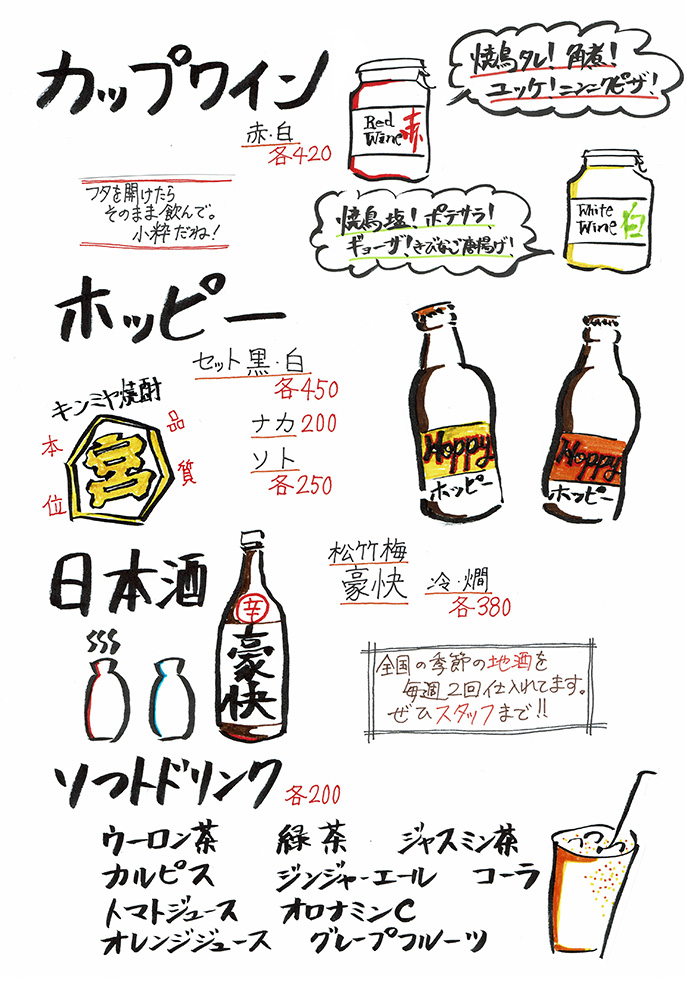 カップワイン
赤・白
各420
フタを開けたら
そのまま飲んで。
小粋だね！
Red
Wine 赤
焼鳥タレ！角煮！
ユッケ！ニンニクピザ！
焼鳥塩！ポテサラ！
ギョーザ！きびなご唐揚げ！
White
Wine 白
ホッピー
セット 黒・白
各450
ナカ 200
ソト
各250
キンミヤ焼酎
品質
本位
宮
Hoppy
ホッピー
Hoppy
ホッピー
日本酒
辛
豪快
松竹梅
豪快 冷・燗
各380
全国の季節の地酒を
毎週2回仕入れてます。
ぜひスタッフまで!!
ソフトドリンク 各200
ウーロン茶 緑茶 ジャスミン茶
カルピス ジンジャーエール コーラ
トマトジュース オロナミンC
オレンジジュース グレープフルーツ